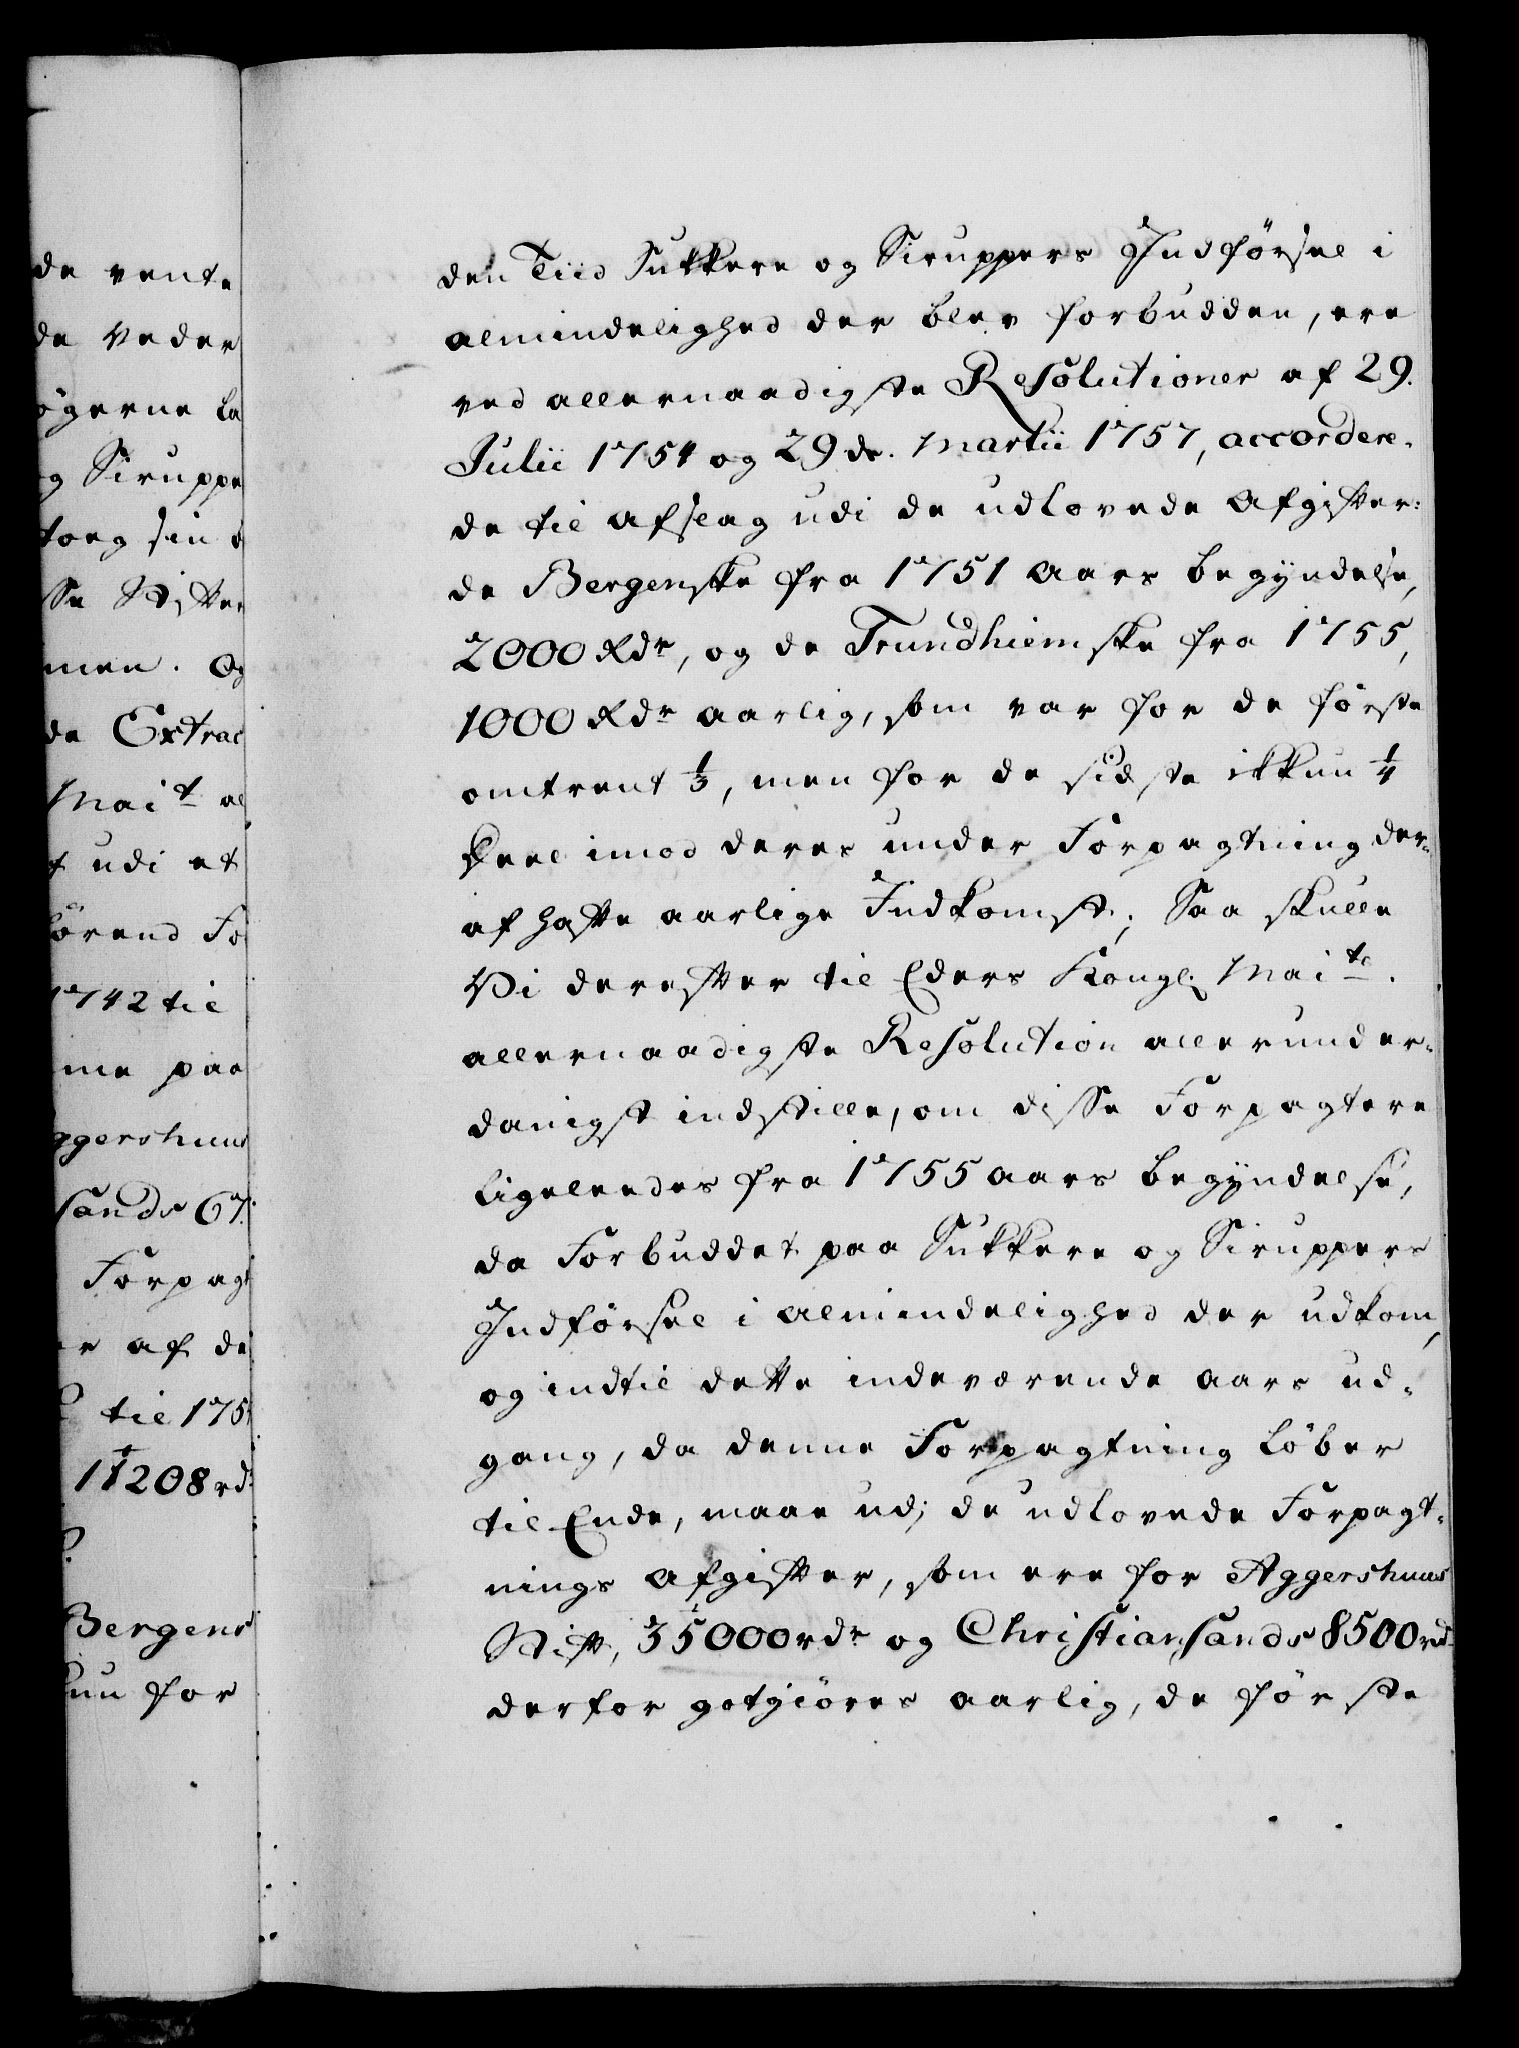 de vente
de Veder
øgerne la
g Siruppe
torg sin
sse Stifter
men. Og
de Extrac
Mait al
t udi et
ørend Fo
1742 til
me paa
ggershuus
sands 67.
Forpagt
er af de
til 175
11208 rd
Bergens
kun for
den Tiid Sukkere og Siruppers Indførsel i
almindelighed der blev forbudden, ere
ved allernaadigste Resolutioner af 29.
Julii 1754 og 29de. Martii 1757, accordere-
de til afslag udi de udlovede Afgifter:
de Bergenske fra 1751 Aars begyndelse,
2000 Rdr, og de Trundhiemske fra 1755,
1000 Rdr aarlig, som var for de første
omtrent 1/3, men for de sidste ikkun 1/4
Deel imod deres under Forpagtning der-
af hafte aarlige Indkomst; Saa skulle
Vi derefter til Eders Kongl. Maits.
allernaadigste Resolution allerunder-
danigst indstille, om disse Forpagtere
ligeleedes fra 1755 aars begyndelse,
da Forbuddet paa Sukkere og Siruppers
Indførsel i Almindelighed der udkom,
og indtil dette indeværende aars ud-
gang, da denne Forpagtning løber
til Ende, maae udi de udlovede Forpagt-
nings Afgifter, som ere for Aggershuus
Stift, 35000 rdr og Christiansands 8500 rd
derfor gotgiøres aarlig, de første